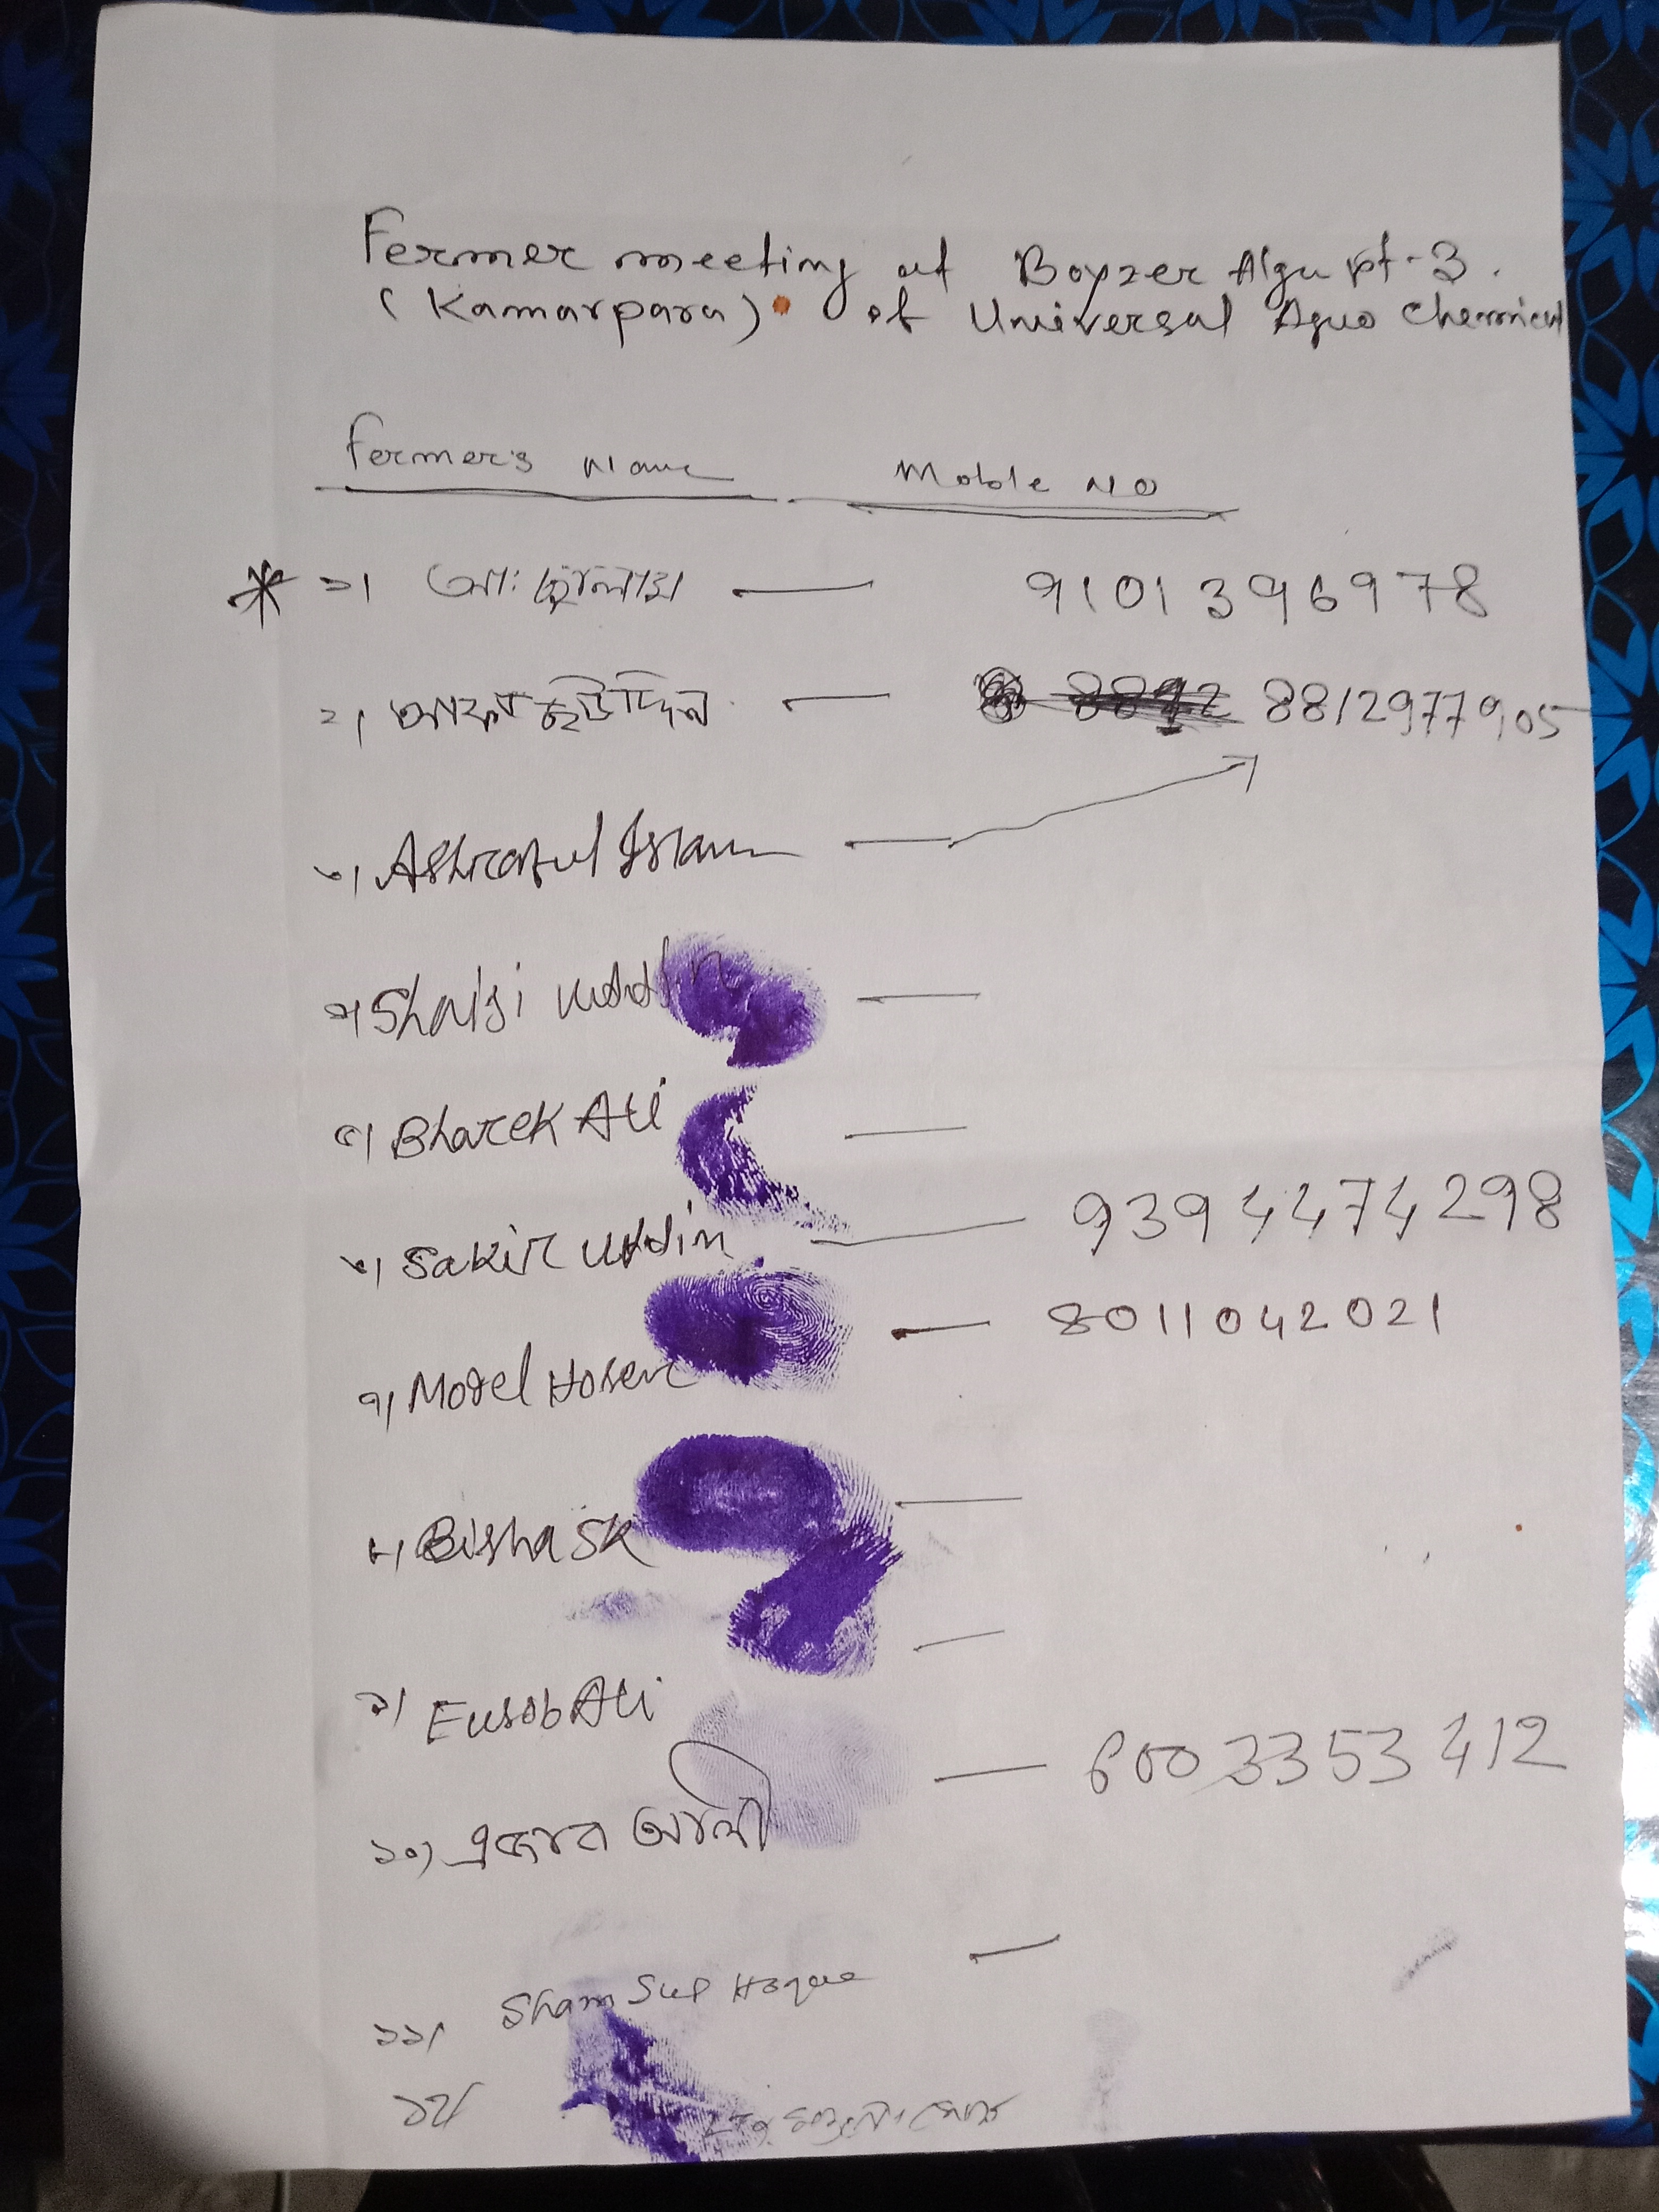 Fermer meeting at Boyzer Alga pt-3.
(Kamarpara) of Universal Agro Chemical
Fermer's Name Moble NO
* ১। আঃ — 9101396978
২। — 8812977905
৩। Ashraful Islam —
৪। uddin —
৫। Bharek Ali —
৬। Sakir uddin — 9394474298
৭। Model Hosen — 8011042021
৮। Bisha SK —
৯। Eusob Ali —
১০) আলী — 6003353412
১১। Sham Sul Hoque —
১২।